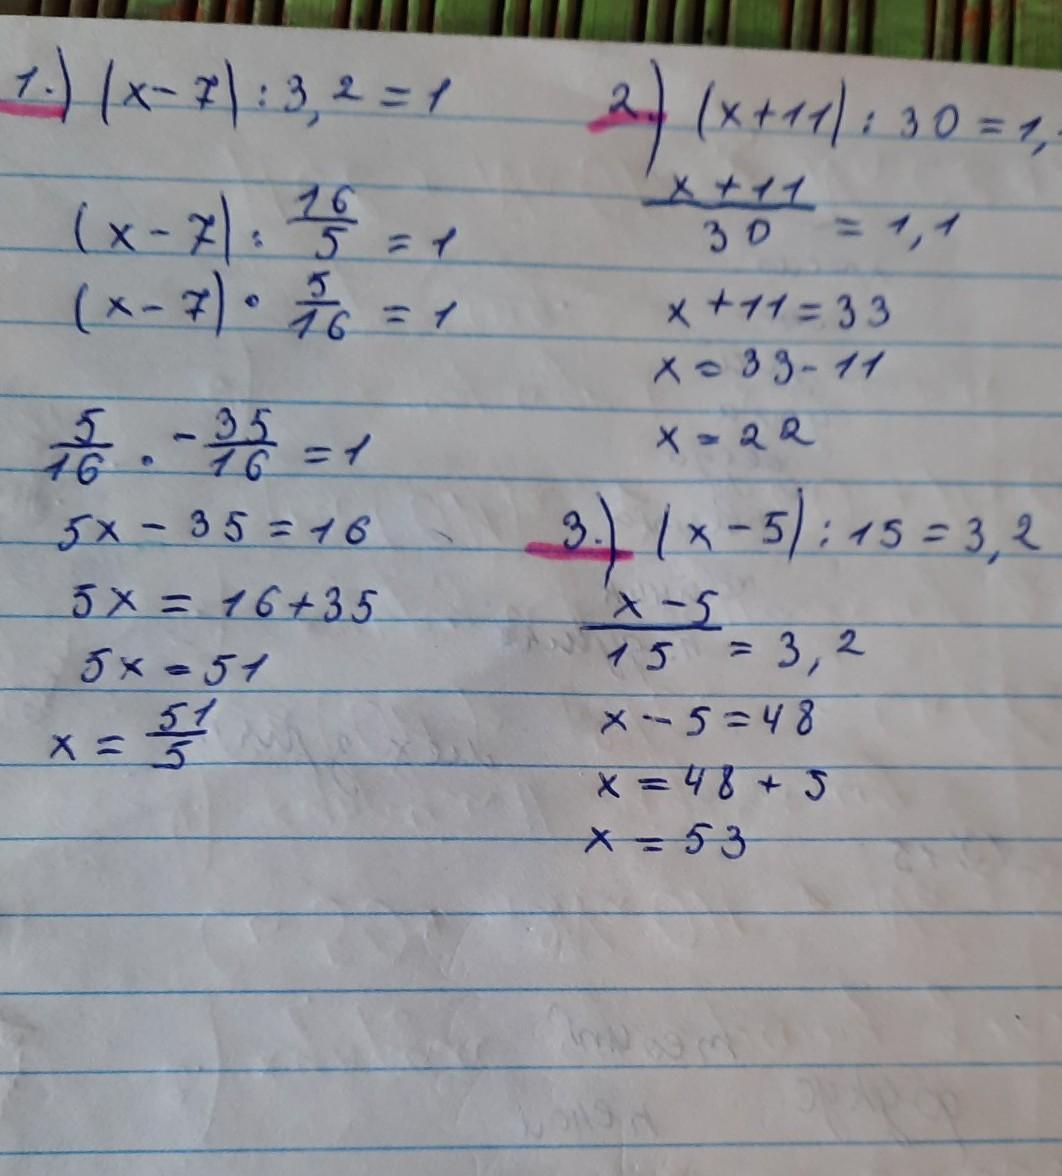 1.) (x-7) : 3,2 = 1
(x-7) : 16/5 = 1
(x-7) • 5/16 = 1
5/16 . -35/16 = 1
5x - 35 = 16
5x = 16+35
5x = 51
x = 51/5
2.) (x+11) : 30 = 1,
x+11/30 = 1,1
x+11=33
x = 33-11
x = 22
3.) (x-5) : 15 = 3,2
x-5/15 = 3,2
x-5=48
x = 48 + 5
x = 53